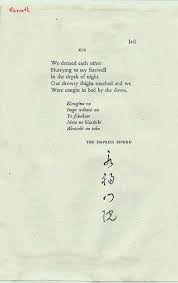 Rexroth
[21]
XIX
We dressed each other
Hurrying to say farewell
In the depth of night
Our drowsy thighs touched and we
Were caught in bed by the dawn.
Kinuginu no
Isogu wakare wa
Yo fukakute
Mata ne hisashiki
Akatsuki no toko
THE EMPRESS EIFUKU
永
福
門
院